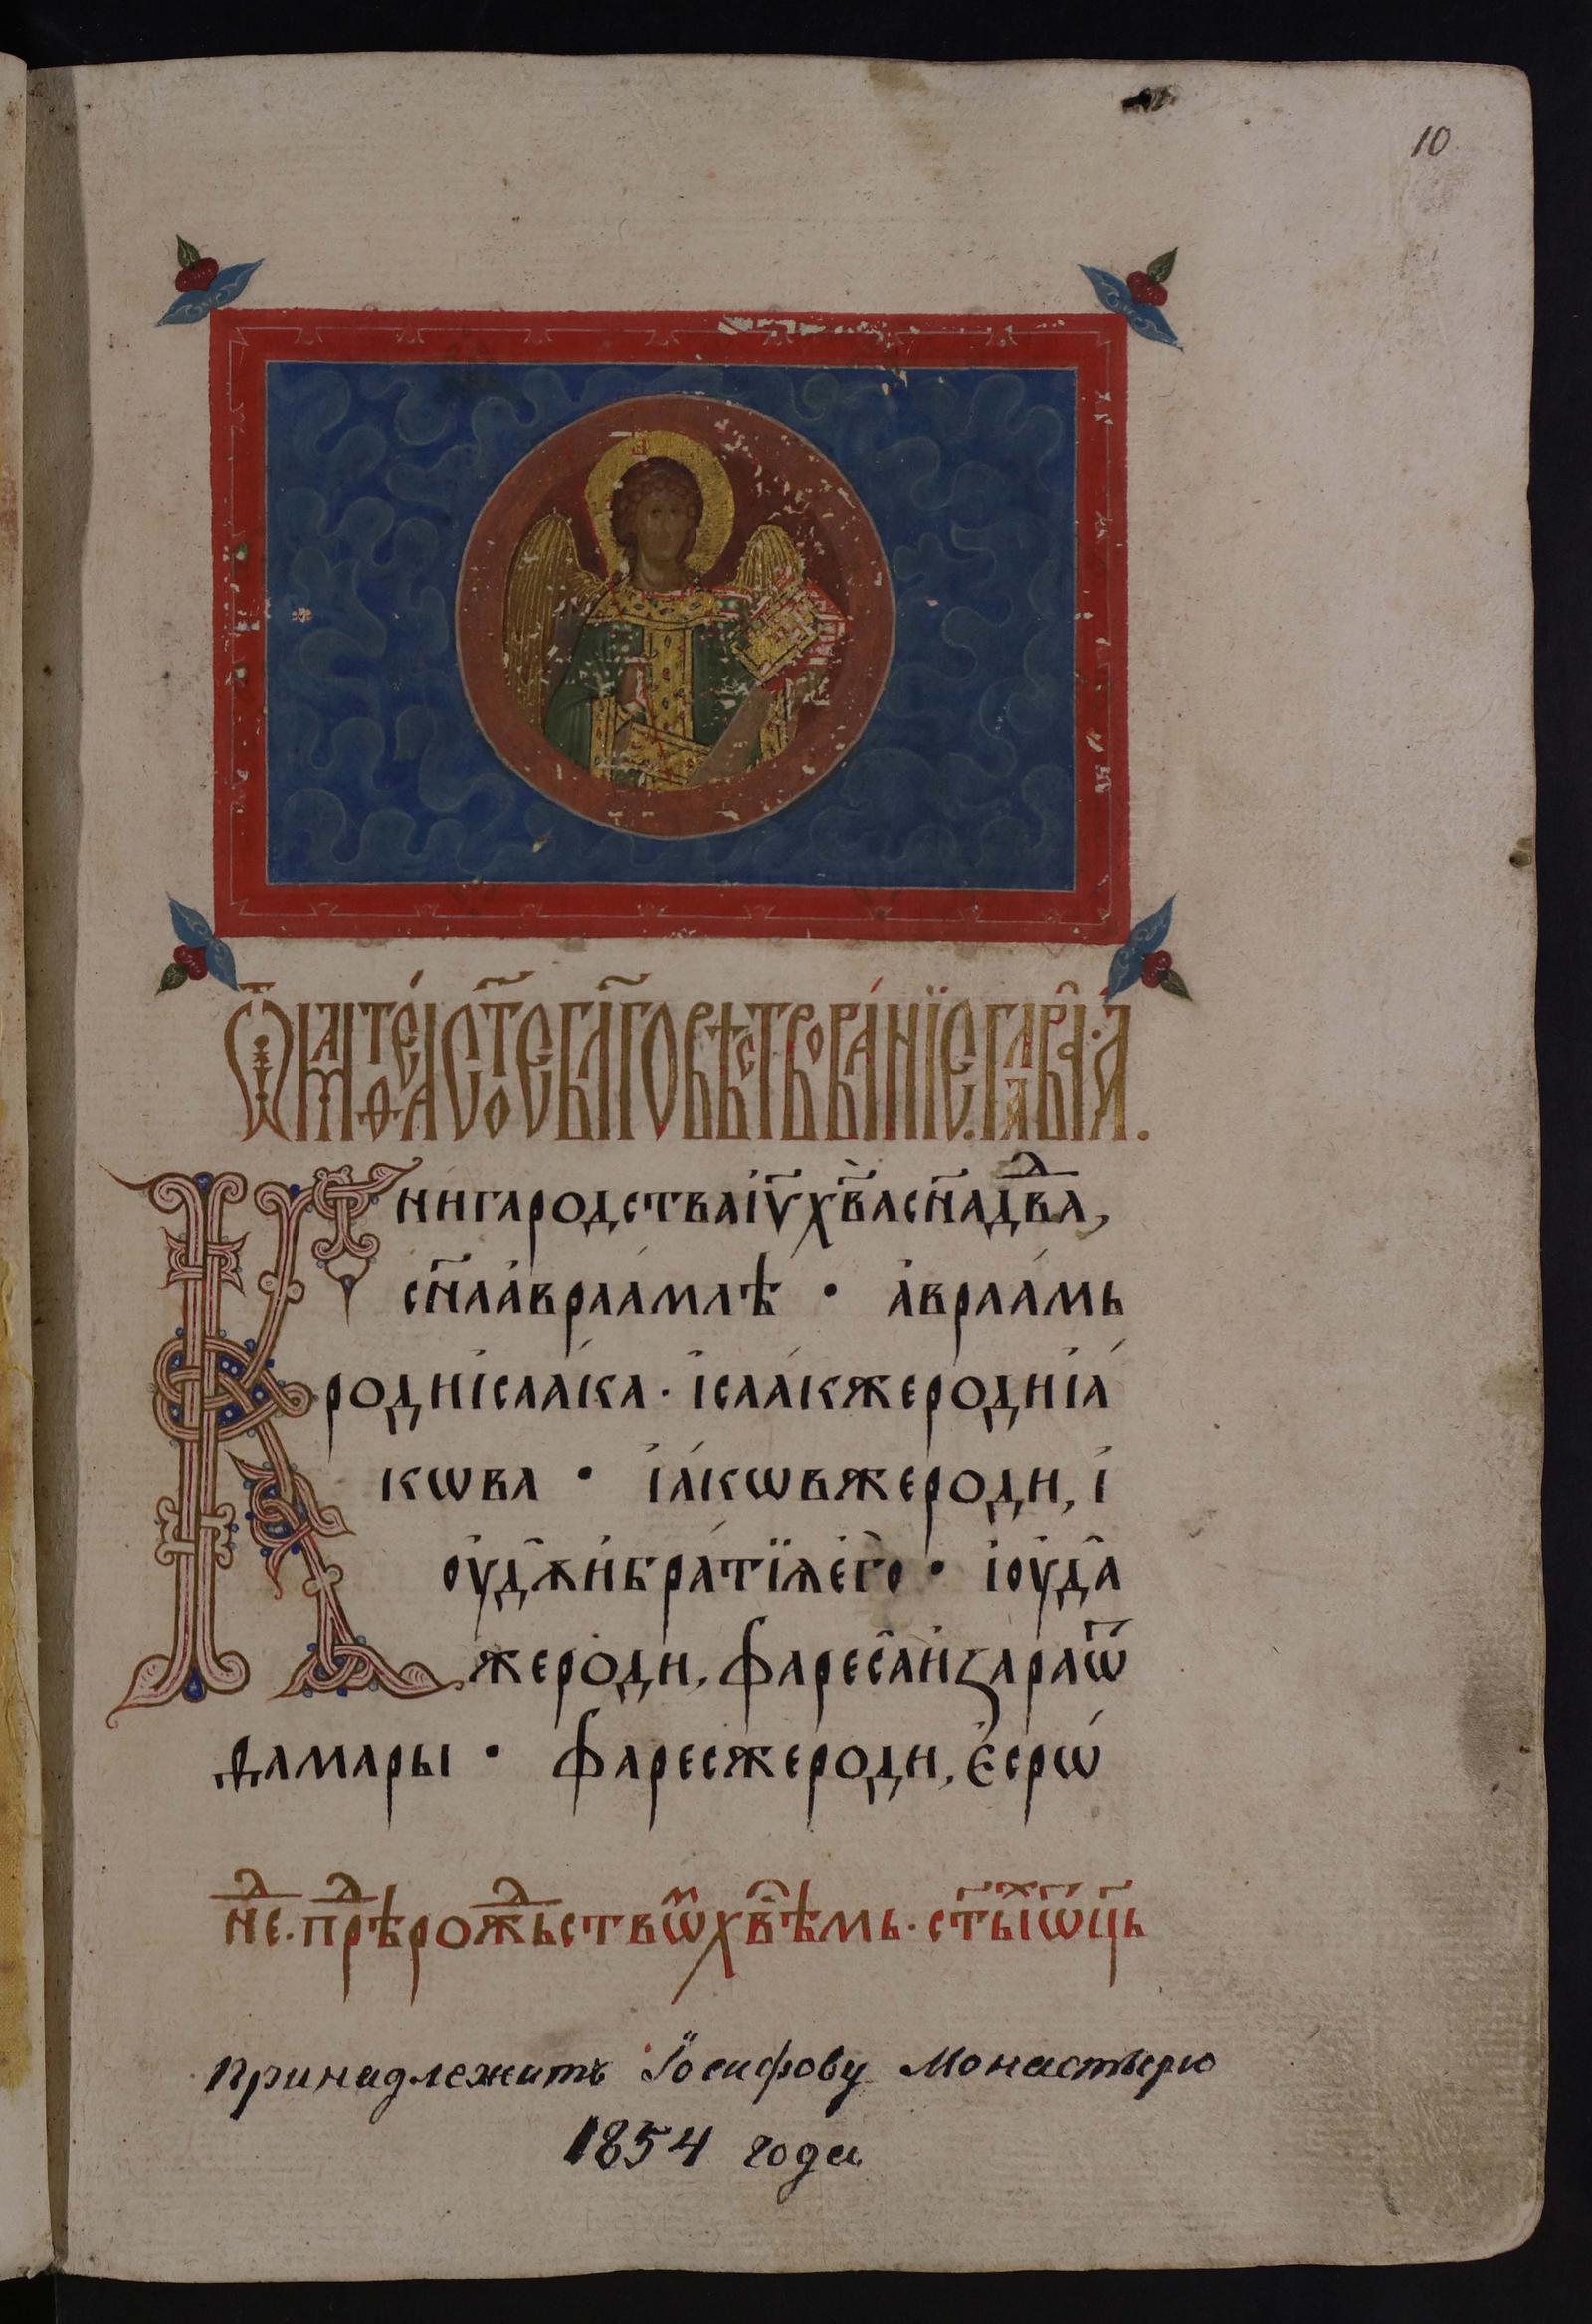 10
Ѿ матѳеа ст҃ое бл҃говѣствованїе глава · а҃ ·
Книгародстваіѵ҃хв҃асн҃адв҃да,
сн҃аавраамлѣ · авраамь
родиісаака · ісаакжеродиіа
кѡва · іакѡвжероди, і
оудѫибратїѧего · іоуда
жероди, фаресаиꙁараѿ
ѳамары · фаресжероди, єсрѡ
нед҃ · прⷣѣрожⷣьствѡⷨхв҃ѣмь · ст҃ыⷯѿц҃ь
Принадлежитъ Іосифову Монастырю
1854 года